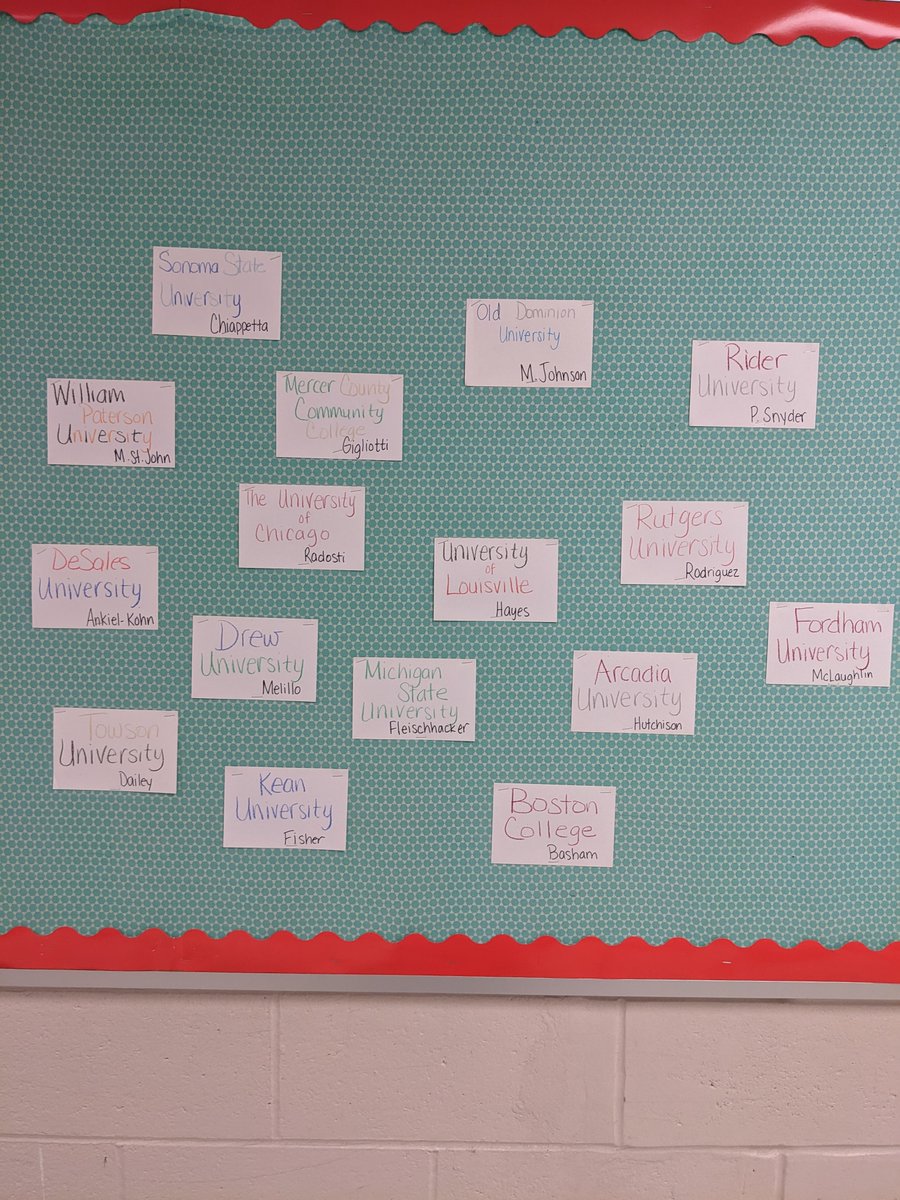 Sonoma State
University
Chiappetta
Old Dominion
University
M. Johnson
Rider
University
P. Snyder
William
Paterson
University
M. St. John
Mercer County
Community
College
Gigliotti
The University
of
Chicago
Radosti
Rutgers
University
Rodriguez
University
of
Louisville
Hayes
DeSales
University
Ankiel-Kohn
Fordham
University
McLaughlin
Drew
University
Melillo
Michigan
State
University
Fleischhacker
Arcadia
University
Hutchison
Towson
University
Dailey
Kean
University
Fisher
Boston
College
Basham